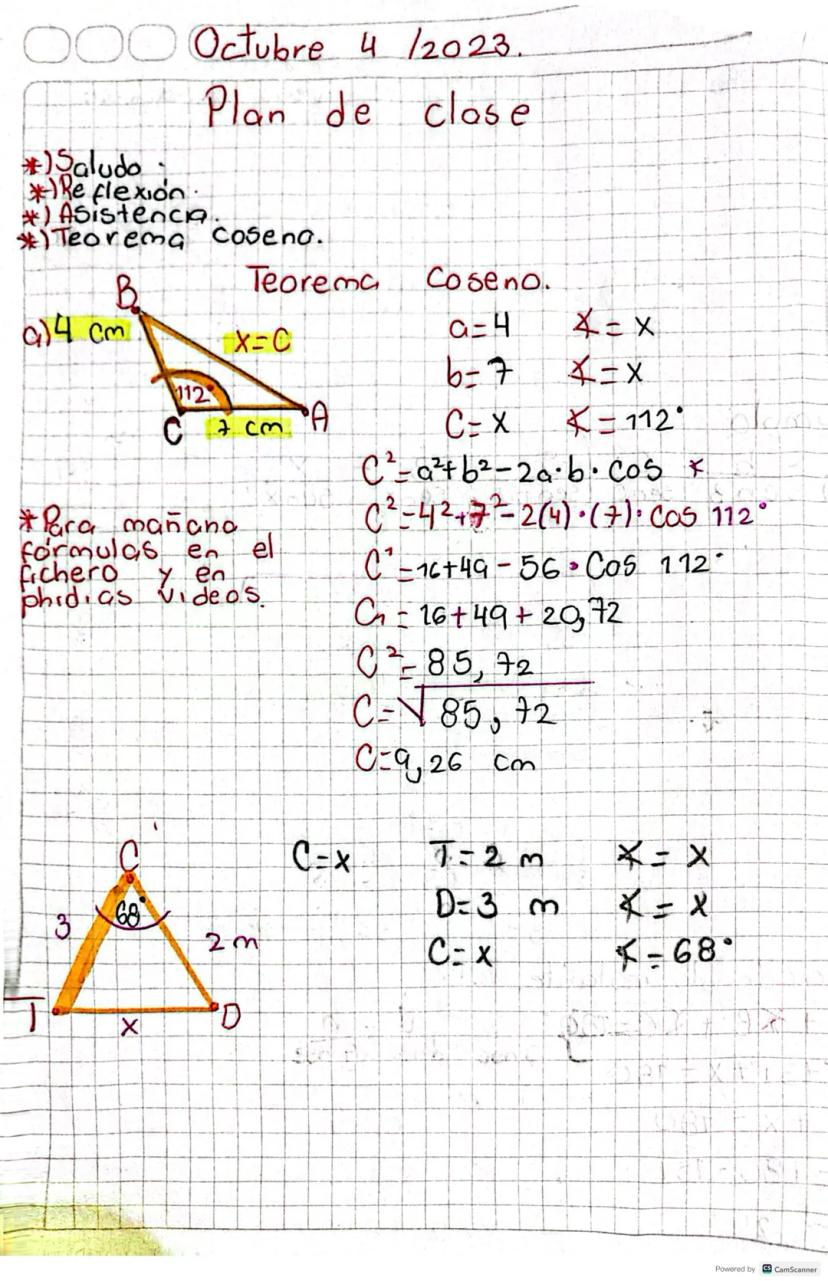 Octubre 4 /2023.
Plan de clase
*) Saludo.
*) Reflexión.
*) Asistencia.
*) Teorema coseno.
Teorema Coseno.
B
a) 4 cm
x=C
112°
C
7 cm
A
a=4 ∡=x
b=7 ∡=x
C=x ∡=112°
C²=a²+b²-2a·b·cos ∡
C²=4²+7²-2(4)·(7)·Cos 112°
C²=16+49-56·Cos 112°
C²=16+49+20,72
C²=85,72
C=√85,72
C=9,26 cm
*Para mañana
fórmulas en el
fichero y en
phidias videos.
C
68°
3
2 m
T
x
D
C=x T=2 m ∡=x
D=3 m ∡=x
C=x ∡=68°
Powered by CS CamScanner